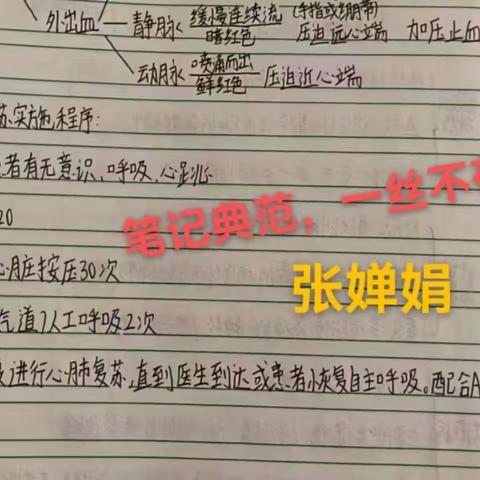 外出血 静脉 缓慢连续流 暗红色 (手指或绷带) 压迫远心端 加压止血
动脉 喷涌而出 鲜红色 压迫近心端
苏实施程序:
者有无意识,呼吸,心跳
20
笔记典范,一丝不
心脏按压30次
张婵娟
气道 人工呼吸2次
进行心肺复苏,直到医生到达或患者恢复自主呼吸。配合A